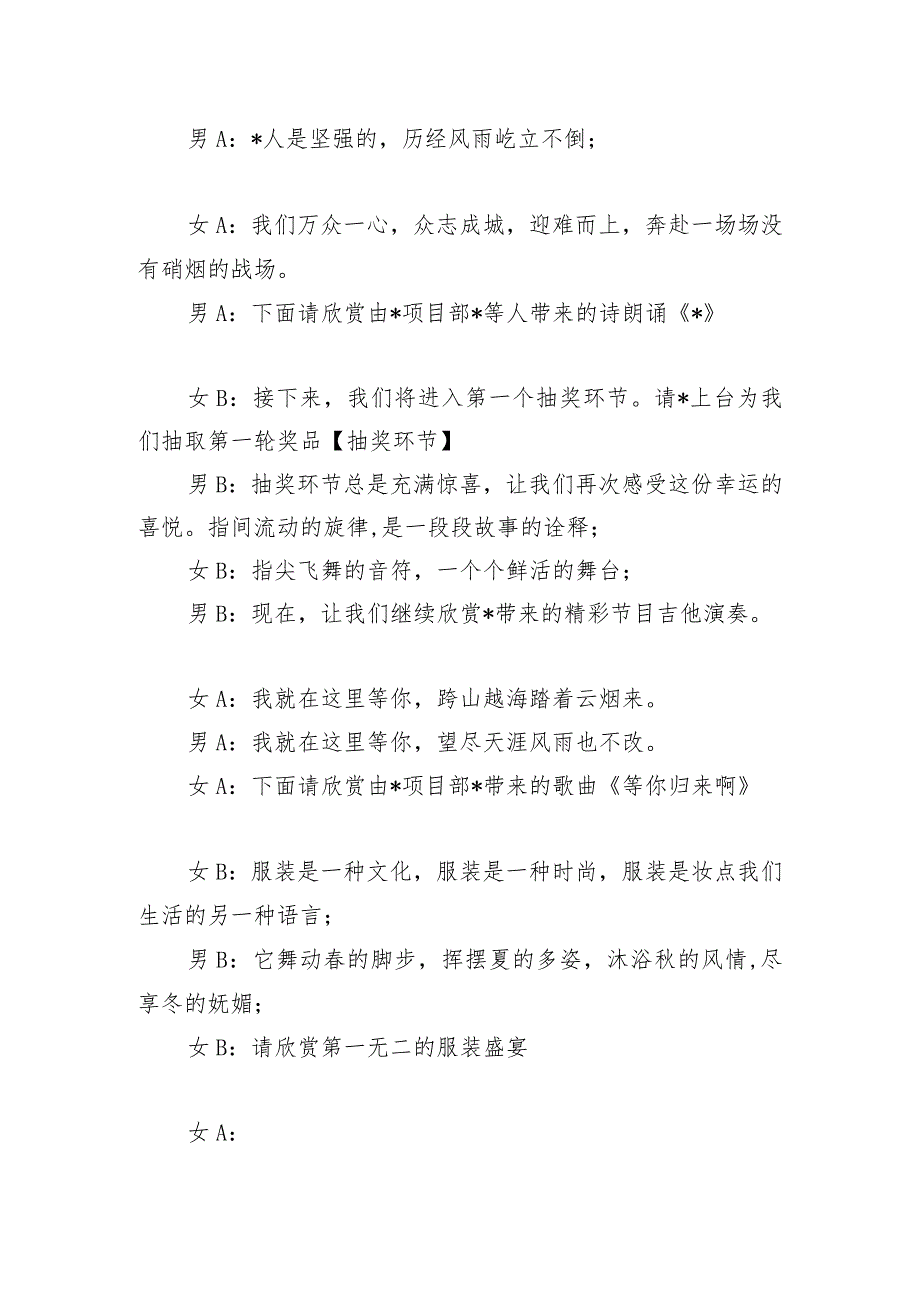 男A：*人是坚强的，历经风雨屹立不倒；
女A：我们万众一心，众志成城，迎难而上，奔赴一场场没
有硝烟的战场。
男A：下面请欣赏由*项目部*等人带来的诗朗诵《*》
女B：接下来，我们将进入第一个抽奖环节。请*上台为我
们抽取第一轮奖品【抽奖环节】
男B：抽奖环节总是充满惊喜，让我们再次感受这份幸运的
喜悦。指间流动的旋律,是一段段故事的诠释；
女B：指尖飞舞的音符，一个个鲜活的舞台；
男B：现在，让我们继续欣赏*带来的精彩节目吉他演奏。
女A：我就在这里等你，跨山越海踏着云烟来。
男A：我就在这里等你，望尽天涯风雨也不改。
女A：下面请欣赏由*项目部*带来的歌曲《等你归来啊》
女B：服装是一种文化，服装是一种时尚，服装是妆点我们
生活的另一种语言；
男B：它舞动春的脚步，挥摆夏的多姿，沐浴秋的风情,尽
享冬的妩媚；
女B：请欣赏第一无二的服装盛宴
女A：